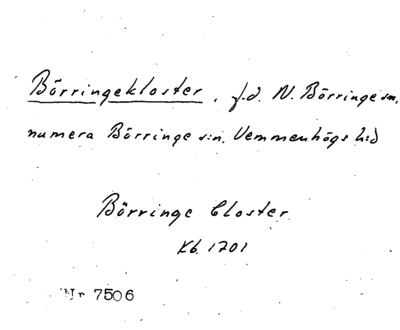 Börringekloster, f.d. N. Börringe sn,
numera Börringe s:n. Vemmenhögs h:d
Börringe Closter
Kb. 1701
Nr 7506